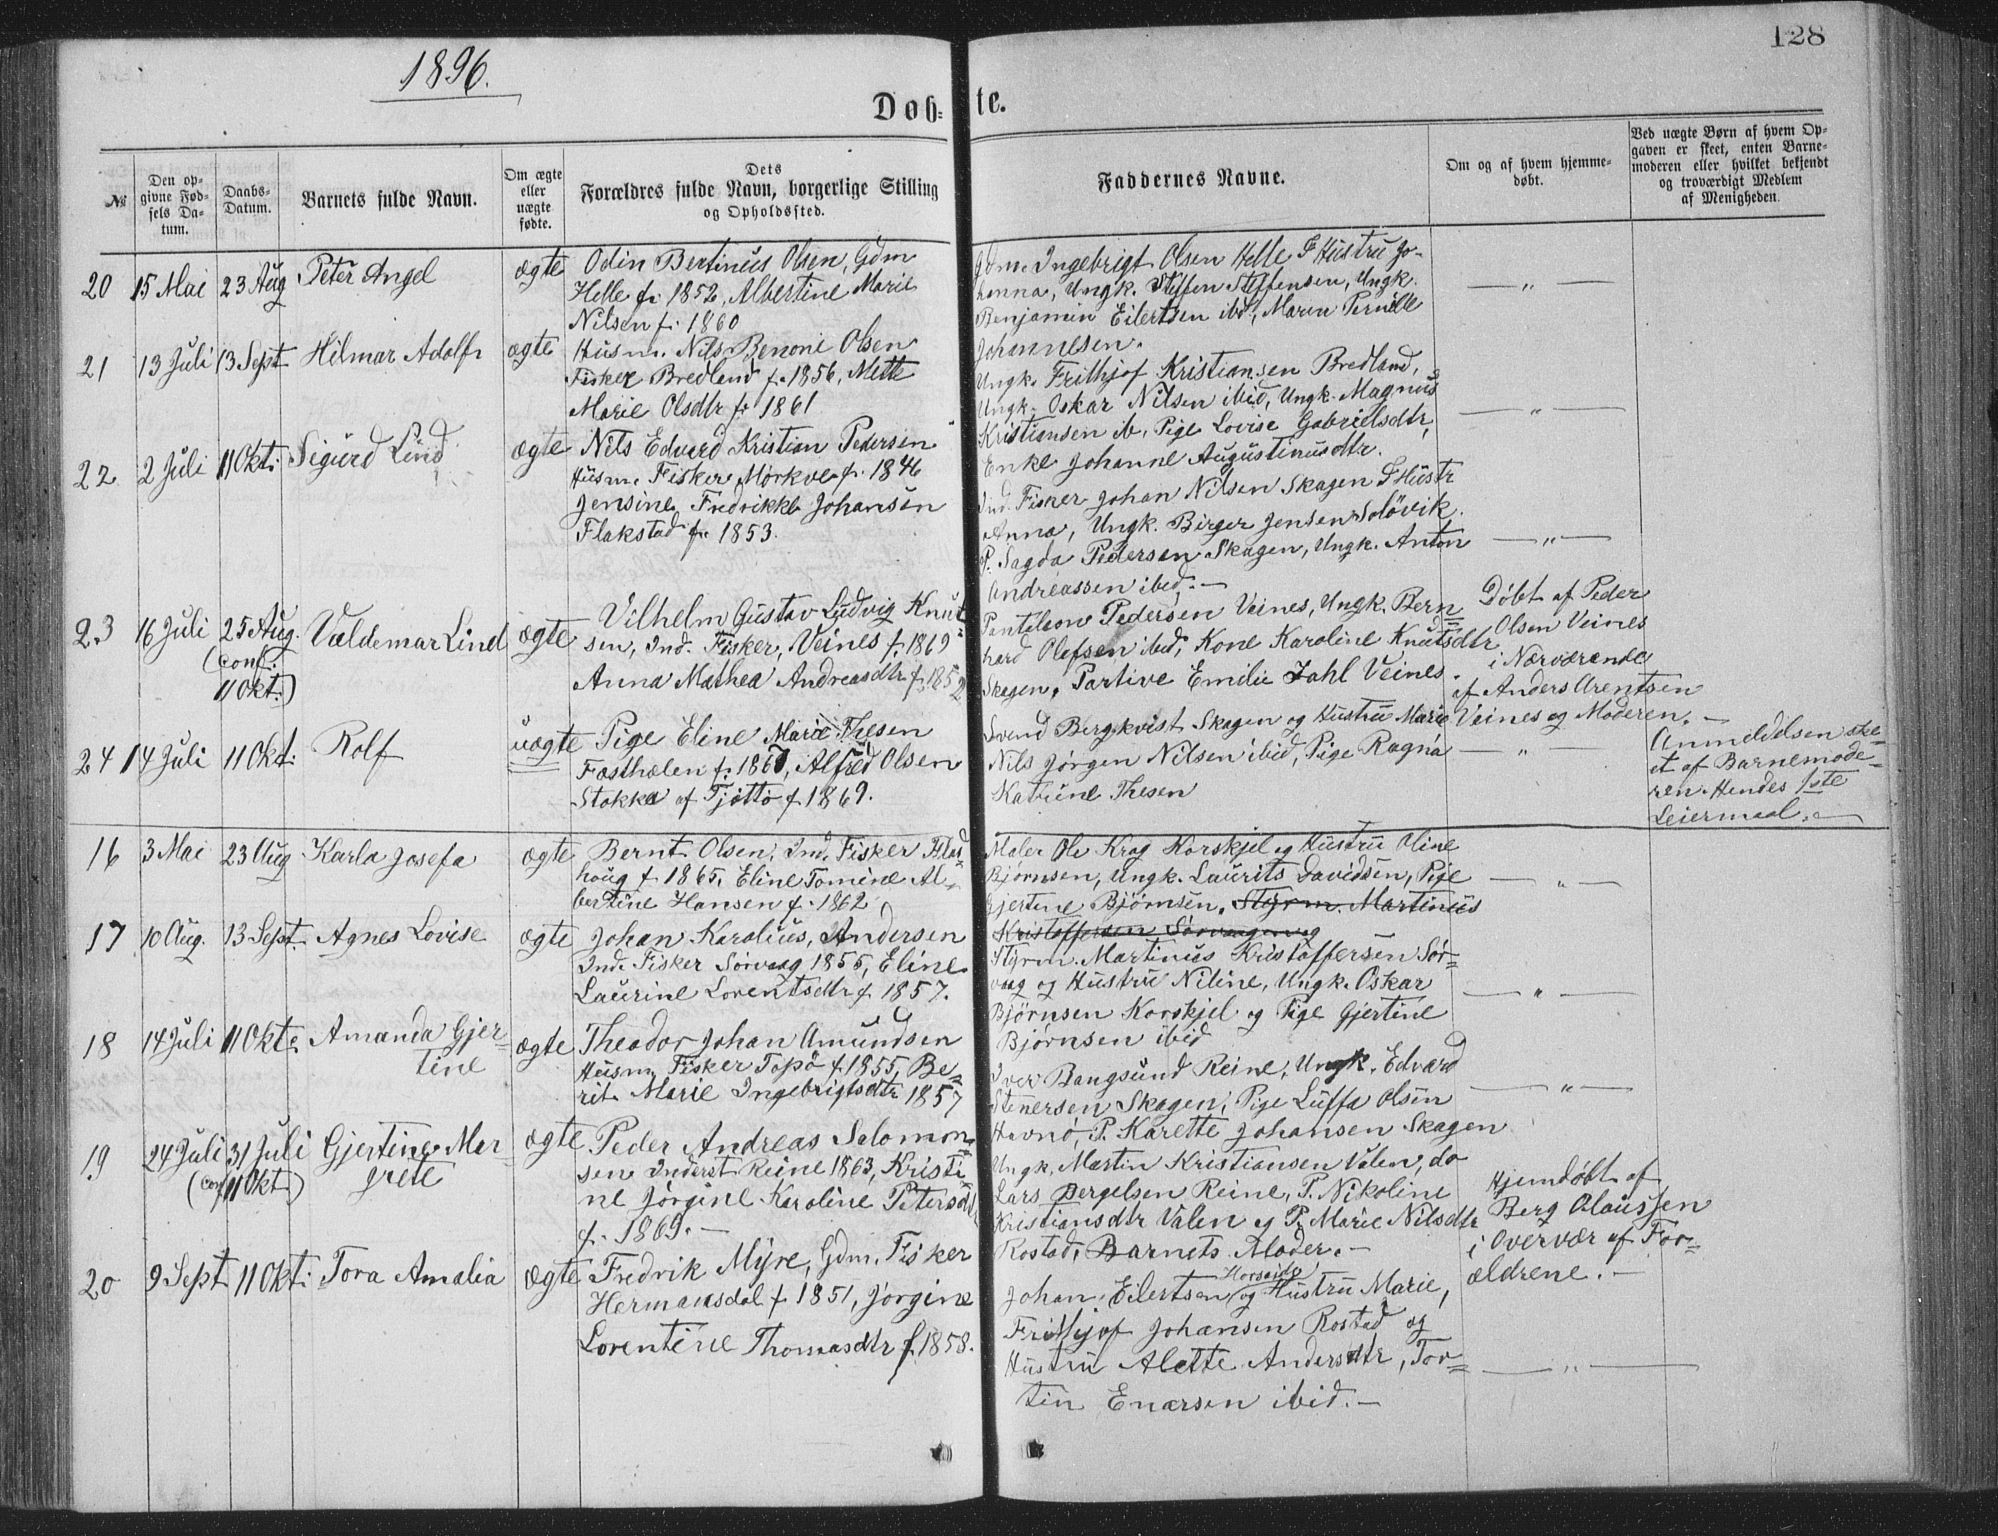 128
1896.
Døb-te.
№
Den op-
givne Fød-
sels Da-
tum.
Daabs-
Datum.
Barnets fulde Navn.
Om ægte
eller
uægte
fødte.
Dets
Forældres fulde Navn, borgerlige Stilling
og Opholdssted.
Faddernes Navne.
Om og af hvem hjemme-
døbt.
Ved uægte Børn af hvem Op-
gaven er skeet, enten Barne-
moderen eller hvilket bekjendt
og troværdigt Medlem
af Menigheden.
20 15 Mai 23 Aug Peter Angel ægte
Odin Bertinus Olsen, Gdm
Helle f. 1852, Albertine Marie
Nilsen f. 1860
Gdm. Ingebrigt Olsen Helle & Hustru Jo-
hanna, Ungk. Steffen Steffensen, Ungk.
Benjamin Eilertsen ibd, Maren Pernille
Johannesen.
— „ —
21 13 Juli 13 Sept Hilmar Adolf ægte
Husm. Nils Benoni Olsen
Fisker Bredland f. 1856, Mette
Marie Olsdtr f. 1861
Ungk. Frithjof Kristiansen Bredland,
Ungk. Oskar Nilsen ibid, Ungk. Magnus
Kristiansen ib, Pige Lovise Gabrielsdtr,
Enke Johanne Augustinusdtr.
— „ —
22 2 Juli 11 Okt: Sigurd Lind ægte
Nils Edvard Kristian Pedersen
Husm. Fisker Mørkve f. 1846
Jensine Fredrikke Johansen
Flakstad f. 1853.
Ind. Fisker Johan Nilsen Skagen & Hustr
Anna, Ungk. Birger Jensen Soløvik.
P. Sagda Pedersen Skagen, Ungk. Anton
Andreassen ibid. —
— „ —
23 16 Juli 25 Aug.
(Conf.
11 Okt.)
Valdemar Lind ægte
Vilhelm Gustav Ludvig Knut-
sen, Ind. Fisker, Veines f. 1869
Anna Mathea Andreasdtr f. 1852
Panteleon Pedersen Veines, Ungk. Bern=
hard Olefsen ibid, Kone Karoline Knutsdtr
Skagen, Partive Emilie Dahl Veines.
Døbt af Peder
Olsen Veines
i Nærværende
af Anders Arentsen
Veines og Moderen. —
24 14 Juli 11 Okt: Rolf uægte
Pige Eline Marie Thesen
Fasthælen f. 1867, Alfred Olsen
Stokka af Tjøtto f. 1869.
Svend Bergkvist Skagen og Hustru Marie
Nils Jørgen Nilsen ibid, Pige Ragna
Katrine Thesen
— „ —
Anmeldelsen ske-
et af Barnemode-
ren. Hendes 1ste
Leiermaal. —
16 3 Mai 23 Aug Karla Josefa ægte
Bernt Olsen, Ind. Fisker Flas-
houg f. 1865, Eline Tomine Al-
bertine Hansen f. 1862
Maler Ole Krog Korskjel og Hustru Oline
Bjørnsen, Ungk. Laurits Davidsen, Pige
Gjertine Bjørnsen. Styrm. Martinus
Kristoffersen Sørvaagen og
— „ —
17 10 Aug. 13 Sept Agnes Lovise ægte
Johan Karolius, Andersen
Ind. Fisker Sørvaag 1855, Eline
Laurine Lorentsdtr f. 1857.
Styrm. Martinus Kristoffersen Sør-
vaag og Hustru Niline, Ungk. Oskar
Bjørnsen Korskjel og Pige Gjertine
Bjørnsen ibid
— „ —
18 14 Juli 11 Okt: Amanda Gjer-
tine ægte
Theodor Johan Amundsen
Husm. Fisker Topø f. 1855, Be=
rit Marie Ingebrigtsdtr 1857
Iver Bangsund Reine, Ungk. Edvard
Stenersen Skagen, Pige Luffa Olsen
Havnø, P. Karette Johansen Skagen
— „ —
19 24 Juli 31 Juli
(Conf 11 Okt.)
Gjertine Mar-
grete ægte
Peder Andreas Salomon-
sen Inderst Reine 1863, Kristi-
ne Jørgine Karoline Petersdtr
f. 1869. —
Ungk. Martin Kristiansen Valen, do
Lars Bergelsen Reine, P. Nikoline
Kristiansdtr Valen og P. Marie Nilsdtr
Rostad, Barnets Moder. —
Hjemdøbt af
Berg Olaussen
i Overvær af For-
ældrene. —
20 9 Sept 11 Okt: Tora Amalia ægte
Fredrik Myre, Gdm. Fisker
Hermansdal f. 1851, Jørgine
Lorentine Thomasdtr f. 1858.
Johan Eilertsen Horseide og Hustru Marie,
Frithjof Johansen Rostad og
Hustru Alette Andersdtr, Tor-
tin Enersen ibid. —
— „ —